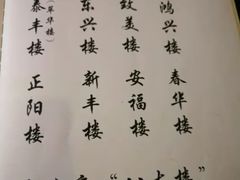 泰丰楼
（翠华楼）
东兴楼
致美楼
鸿兴楼
正阳楼
新丰楼
安福楼
春华楼
“八大楼”